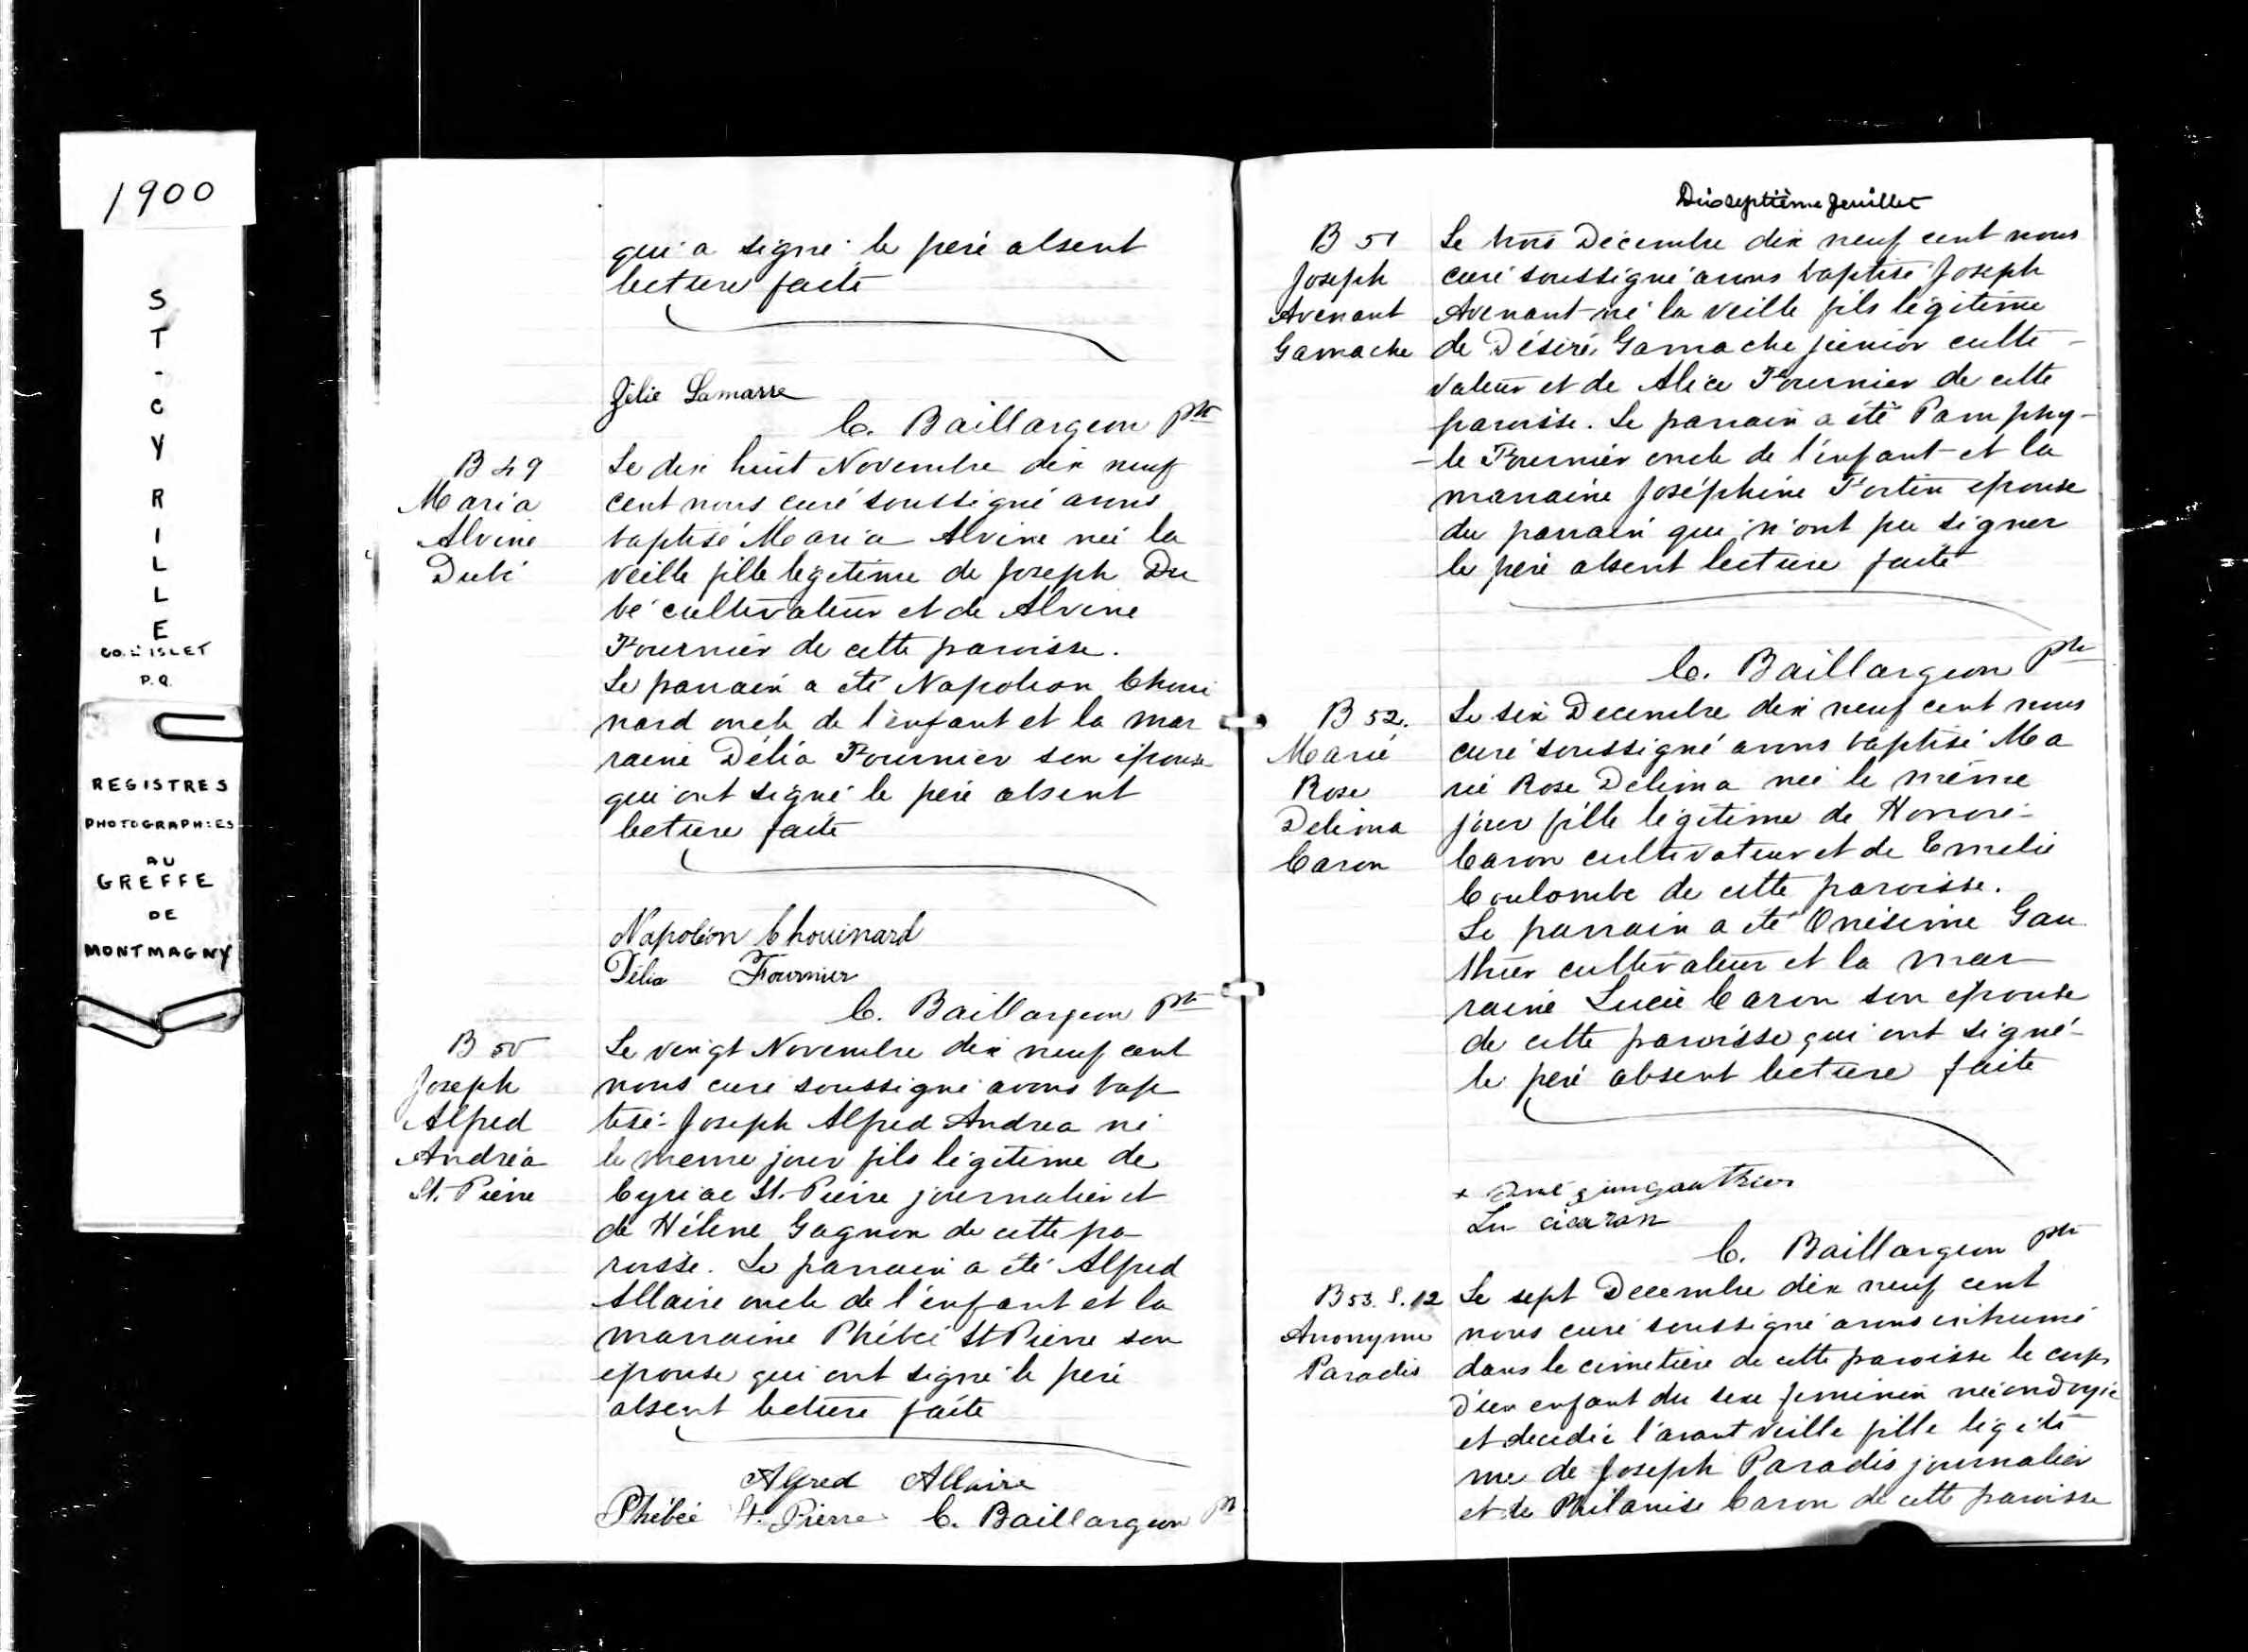 1900
S
T
-
C
Y
R
I
L
L
E
CO. L'ISLET
P.Q.
REGISTRES
PHOTOGRAPHIES
AU
GREFFE
DE
MONTMAGNY
qui a signé le père absent
lecture faite
Zélie Lamarre
C. Baillargeon Ptre
B 49
Maria
Alvine
Dubé
Le dix huit Novembre dix neuf
cent nous curé soussigné avons
baptisé Maria Alvine née la
veille fille légitime de Joseph Du
bé cultivateur et de Alvine
Fournier de cette paroisse.
Le parrain a été Napoléon Choui
nard oncle de l'enfant et la mar
raine Délia Fournier son épouse
qui ont signé le père absent
lecture faite
Napoléon Chouinard
Délia Fournier
C. Baillargeon Ptre
B 50
Joseph
Alfred
Andréa
St. Pierre
Le vingt Novembre dix neuf cent
nous curé soussigné avons bap
tisé Joseph Alfred Andrea né
le meme jour fils légitime de
Cyriac St. Pierre journalier et
de Hélène Gagnon de cette pa-
roisse. Le parrain a été Alfred
Allaire oncle de l'enfant et la
marraine Phébée St Pierre son
epouse qui ont signé le père
absent lecture faite
Alfred Allaire
Phébée St. Pierre C. Baillargeon Ptre
Dixseptième feuillet
B 51
Joseph
Avenant
Gamache
Le trois Décembre dix neuf cent nous
curé soussigné avons baptisé Joseph
Avenant né la veille fils légitime
de Désiré Gamache junior culti-
vateur et de Alice Fournier de cette
paroisse. Le parrain a été Pamphy-
-le Fournier oncle de l'enfant et la
marraine Joséphine Fortin epouse
du parrain qui n'ont pu signer
le père absent lecture faite
C. Baillargeon Ptre
B 52.
Marie
Rose
Delima
Caron
Le six Decembre dix neuf cent nous
curé soussigné avons baptisé Ma
rie Rose Delima née le même
jour fille légitime de Honoré
Caron cultivateur et de Emelie
Coulombe de cette paroisse.
Le parrain a été Onésime Gau
thier cultivateur et la mar
raine Lucie Caron son epouse
de cette paroisse qui ont signé
le père absent lecture faite
C. Baillargeon Ptre
B 53. S. 12
Anonyme
Paradis
Le sept Decembre dix neuf cent
nous curé soussigné avons inhumé
dans le cimetière de cette paroisse le corps
d'un enfant du sexe feminin née ondoyée
et decedée l'avant veille fille légiti
me de Joseph Paradis journalier
et de Philanise Caron de cette paroisse